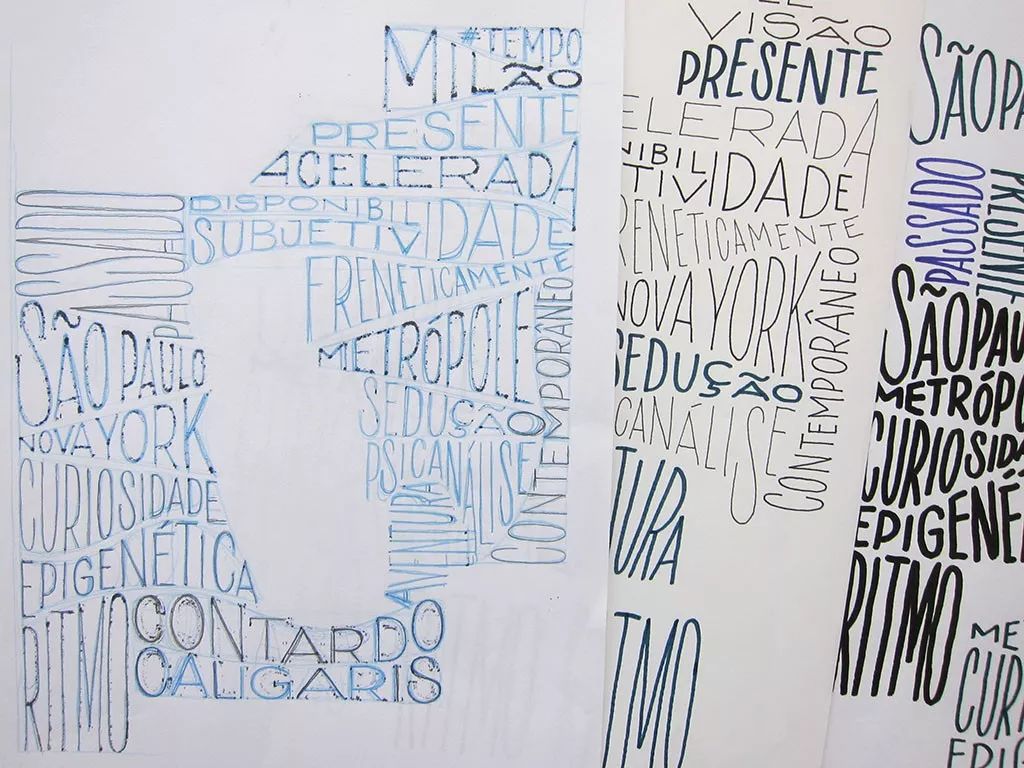 #TEMPO
MILÃO
PRESENTE
ACELERADA
DISPONIBILIDADE
SUBJETIVIDADE
FRENETICAMENTE
METRÓPOLE
SEDUÇÃO
PSICANÁLISE
CONTEMPORÂNEO
AVENTURA
SÃO PAULO
NOVA YORK
CURIOSIDADE
EPIGENÉTICA
RITMO
CONTARDO
CALIGARIS
VISÃO
PRESENTE
ELERADA
NIBILIDADE
TIVIDADE
FRENETICAMENTE
NOVA YORK
SEDUÇÃO
CANÁLISE
CONTEMPORÂNEO
TURA
TMO
SÃO PA
PASSADO
PRESENTE
SÃO PAU
METRÓPO
CURIOSIDA
EPIGENÉ
RITMO
ME
CURI
EPIG